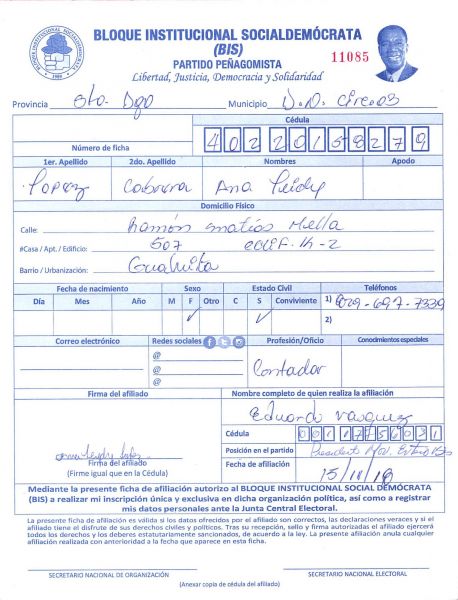 BLOQUE INSTITUCIONAL SOCIALDEMÓCRATA
(BIS)
PARTIDO PEÑAGOMISTA
11085
Libertad, Justicia, Democracia y Solidaridad
Provincia Sto. Dgo Municipio D.N. Circ. 03
Cédula
Número de ficha 402 2015827 9
1er. Apellido 2do. Apellido Nombres Apodo
Lopez Cabrera Ana Leidy
Domicilio Físico
Calle: Ramón Matías Mella
#Casa / Apt. / Edificio: 507 edif. 14-2
Barrio / Urbanización: Gualuita
Fecha de nacimiento Sexo Estado Civil Teléfonos
Día Mes Año M F Otro C S Conviviente 1) 829-697-7339
2)
Correo electrónico Redes sociales Profesión/Oficio Conocimientos especiales
@
@
@
Contador
Firma del afiliado Nombre completo de quien realiza la afiliación
Eduardo Vasquez
Cédula 001 1756031
Posición en el partido Presidente
Firma del afiliado
(Firme igual que en la Cédula)
Fecha de afiliación 15/11/18
Mediante la presente ficha de afiliación autorizo al BLOQUE INSTITUCIONAL SOCIAL DEMÓCRATA
(BIS) a realizar mi inscripción única y exclusiva en dicha organización política, así como a registrar
mis datos personales ante la Junta Central Electoral.
La presente ficha de afiliación es válida si los datos ofrecidos por el afiliado son correctos, las declaraciones veraces y si el
afiliado tiene el disfrute de sus derechos civiles y políticos. Tras su recepción, sello y firma autorizados el afiliado ejercerá
todos los derechos y los deberes estatutariamente sancionados, de acuerdo a la ley. La presente afiliación anula cualquier
afiliación realizada con anterioridad a la fecha que aparece en esta ficha.
SECRETARIO NACIONAL DE ORGANIZACIÓN SECRETARIO NACIONAL ELECTORAL
(Anexar copia de cédula del afiliado)